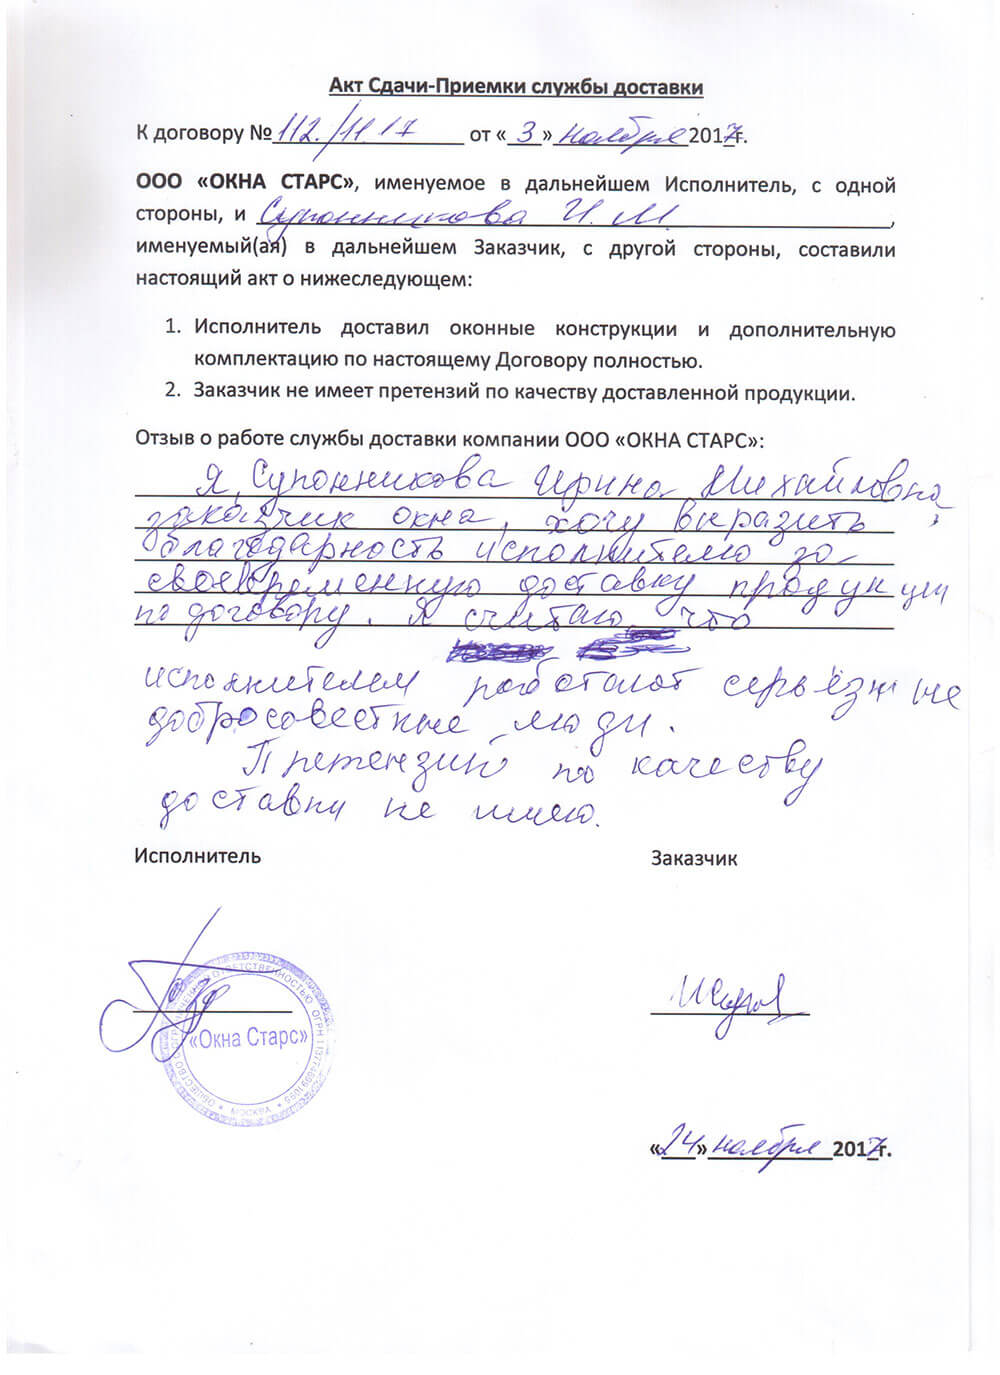 Акт Сдачи-Приемки службы доставки
К договору № 112./11.17 от «3» ноября 2017г.
ООО «ОКНА СТАРС», именуемое в дальнейшем Исполнитель, с одной
стороны, и Супонникова И. М.,
именуемый(ая) в дальнейшем Заказчик, с другой стороны, составили
настоящий акт о нижеследующем:
1. Исполнитель доставил оконные конструкции и дополнительную
комплектацию по настоящему Договору полностью.
2. Заказчик не имеет претензий по качеству доставленной продукции.
Отзыв о работе службы доставки компании ООО «ОКНА СТАРС»:
Я, Супонникова Ирина Михайловна,
заказчик окна, хочу выразить
благодарность исполнителю за
своевременную доставку продукции
по договору. Я считаю что
исполнителем работают серьёзные
добросовестные люди.
Претензий по качеству
доставки не имею.
Исполнитель Заказчик
ОБЩЕСТВО С ОГРАНИЧЕННОЙ ОТВЕТСТВЕННОСТЬЮ ОГРН
«Окна Старс»
МОСКВА
«24» ноября 2017г.